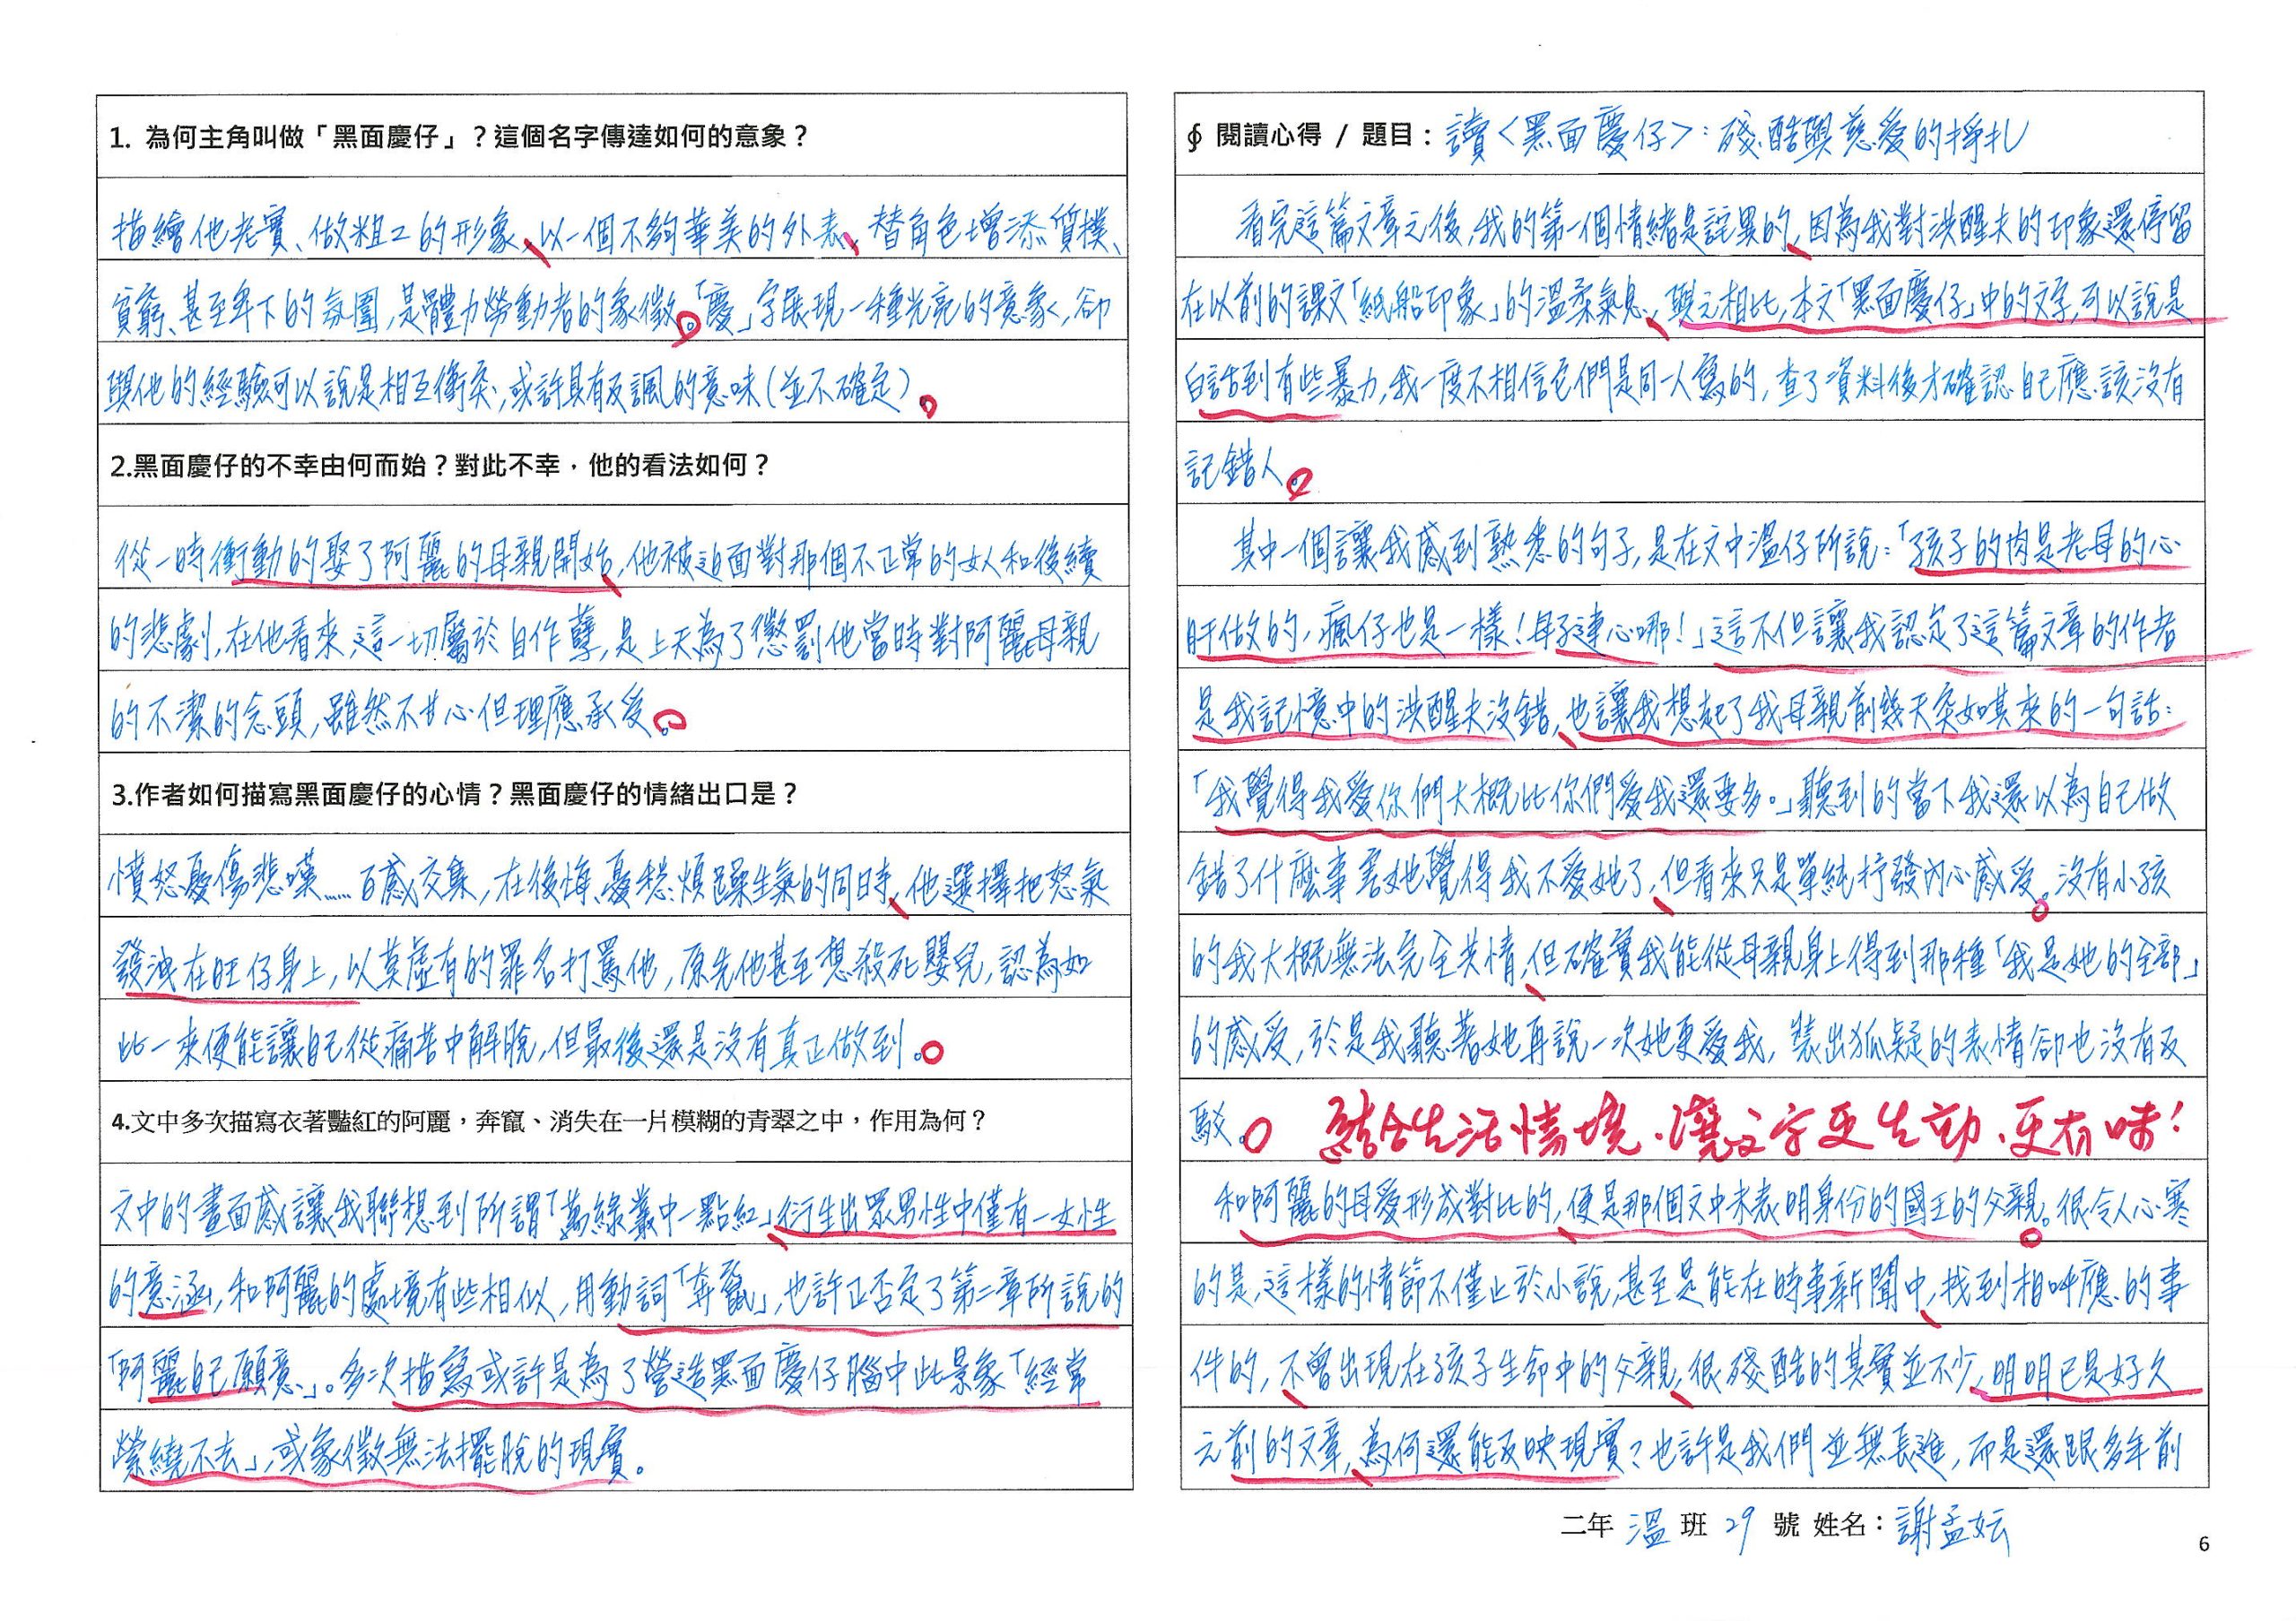 1. 為何主角叫做「黑面慶仔」?這個名字傳達如何的意象?
描繪他老實、做粗工的形象、以一個不夠華美的外表、替角色增添質樸、
貧窮、甚至卑下的氛圍,是體力勞動者的象徵。「慶」字展現一種光亮的意象,卻
與他的經驗可以說是相互衝突,或許具有反諷的意味(並不確定)。
2.黑面慶仔的不幸由何而始?對此不幸,他的看法如何?
從一時衝動的娶了阿麗的母親開始,他被迫面對那個不正常的女人和後續
的悲劇,在他看來,這一切屬於自作孽,是上天為了懲罰他當時對阿麗母親
的不潔的念頭,雖然不甘心但理應承受。
3.作者如何描寫黑面慶仔的心情?黑面慶仔的情緒出口是?
憤怒憂傷悲嘆……百感交集,在後悔、憂愁、煩躁生氣的同時、他選擇把怒氣
發洩在旺仔身上,以莫虛有的罪名打罵他,原先他甚至想殺死嬰兒,認為如
此一來便能讓自己從痛苦中解脫,但最後還是沒有真正做到。
4.文中多次描寫衣著豔紅的阿麗,奔竄、消失在一片模糊的青翠之中,作用為何?
文中的畫面感讓我聯想到所謂「萬綠叢中一點紅」、衍生出眾男性中僅有一女性
的意涵,和阿麗的處境有些相似,用動詞「奔竄」,也許正否定了第二章所說的
「阿麗自己願意」。多次描寫或許是為了營造黑面慶仔腦中此景象「經常
縈繞不去」,或象徵無法擺脫的現實。
∮ 閱讀心得 / 題目:讀<黑面慶仔>:殘酷與慈愛的掙扎
看完這篇文章之後,我的第一個情緒是詫異的,因為我對洪醒夫的印象還停留
在以前的課文「紙船印象」的溫柔氣息、與之相比,本文「黑面慶仔」中的文字,可以說是
白話到有些暴力,我一度不相信它們是同一人寫的,查了資料後才確認自己應該沒有
記錯人。
其中一個讓我感到熟悉的句子,是在文中溫仔所說:「孩子的肉是老母的心
肝做的,瘋仔也是一樣!母子連心哪!」這不但讓我認定了這篇文章的作者
是我記憶中的洪醒夫沒錯,也讓我想起了我母親前幾天突如其來的一句話:
「我覺得我愛你們大概比你們愛我還要多。」聽到的當下我還以為自己做
錯了什麼事害她覺得我不愛她了,但看來只是單純抒發內心感受。沒有小孩
的我大概無法完全共情,但確實我能從母親身上得到那種「我是她的全部」
的感受,於是我聽著她再說一次她更愛我,裝出狐疑的表情卻也沒有反
駁。 結合生活情境,讓文字更生動、更有味!
和阿麗的母愛形成對比的,便是那個文中未表明身份的國王的父親。很令人心寒
的是,這樣的情節不僅止於小說,甚至是能在時事新聞中,找到相呼應的事
件的,不曾出現在孩子生命中的父親,很殘酷的其實並不少,明明已是好久
之前的文章,為何還能反映現實?也許是我們並無長進,而是還跟多年前
二年 溫 班 29 號 姓名:謝孟妘
6